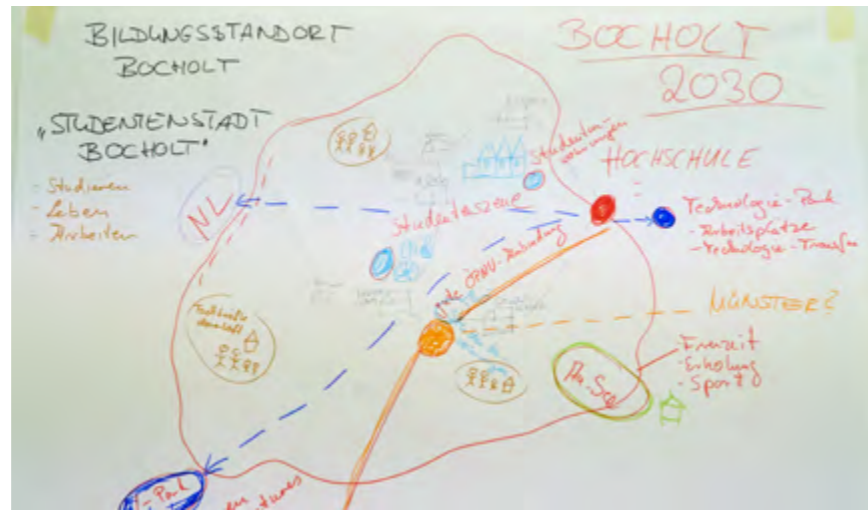 BILDUNGSSTANDORT
BOCHOLT
BOCHOLT
2030
„STUDENTENSTADT
BOCHOLT"
- Studieren
- Leben
- Arbeiten
NL
Studenten-
wohnungen
HOCHSCHULE
Technologie-Park
- Arbeitsplätze
- Technologie-Transfer
Studentenszene
gute ÖPNV-Anbindung
MÜNSTER?
- Freizeit
- Erholung
- Sport
Aa-See
- Park